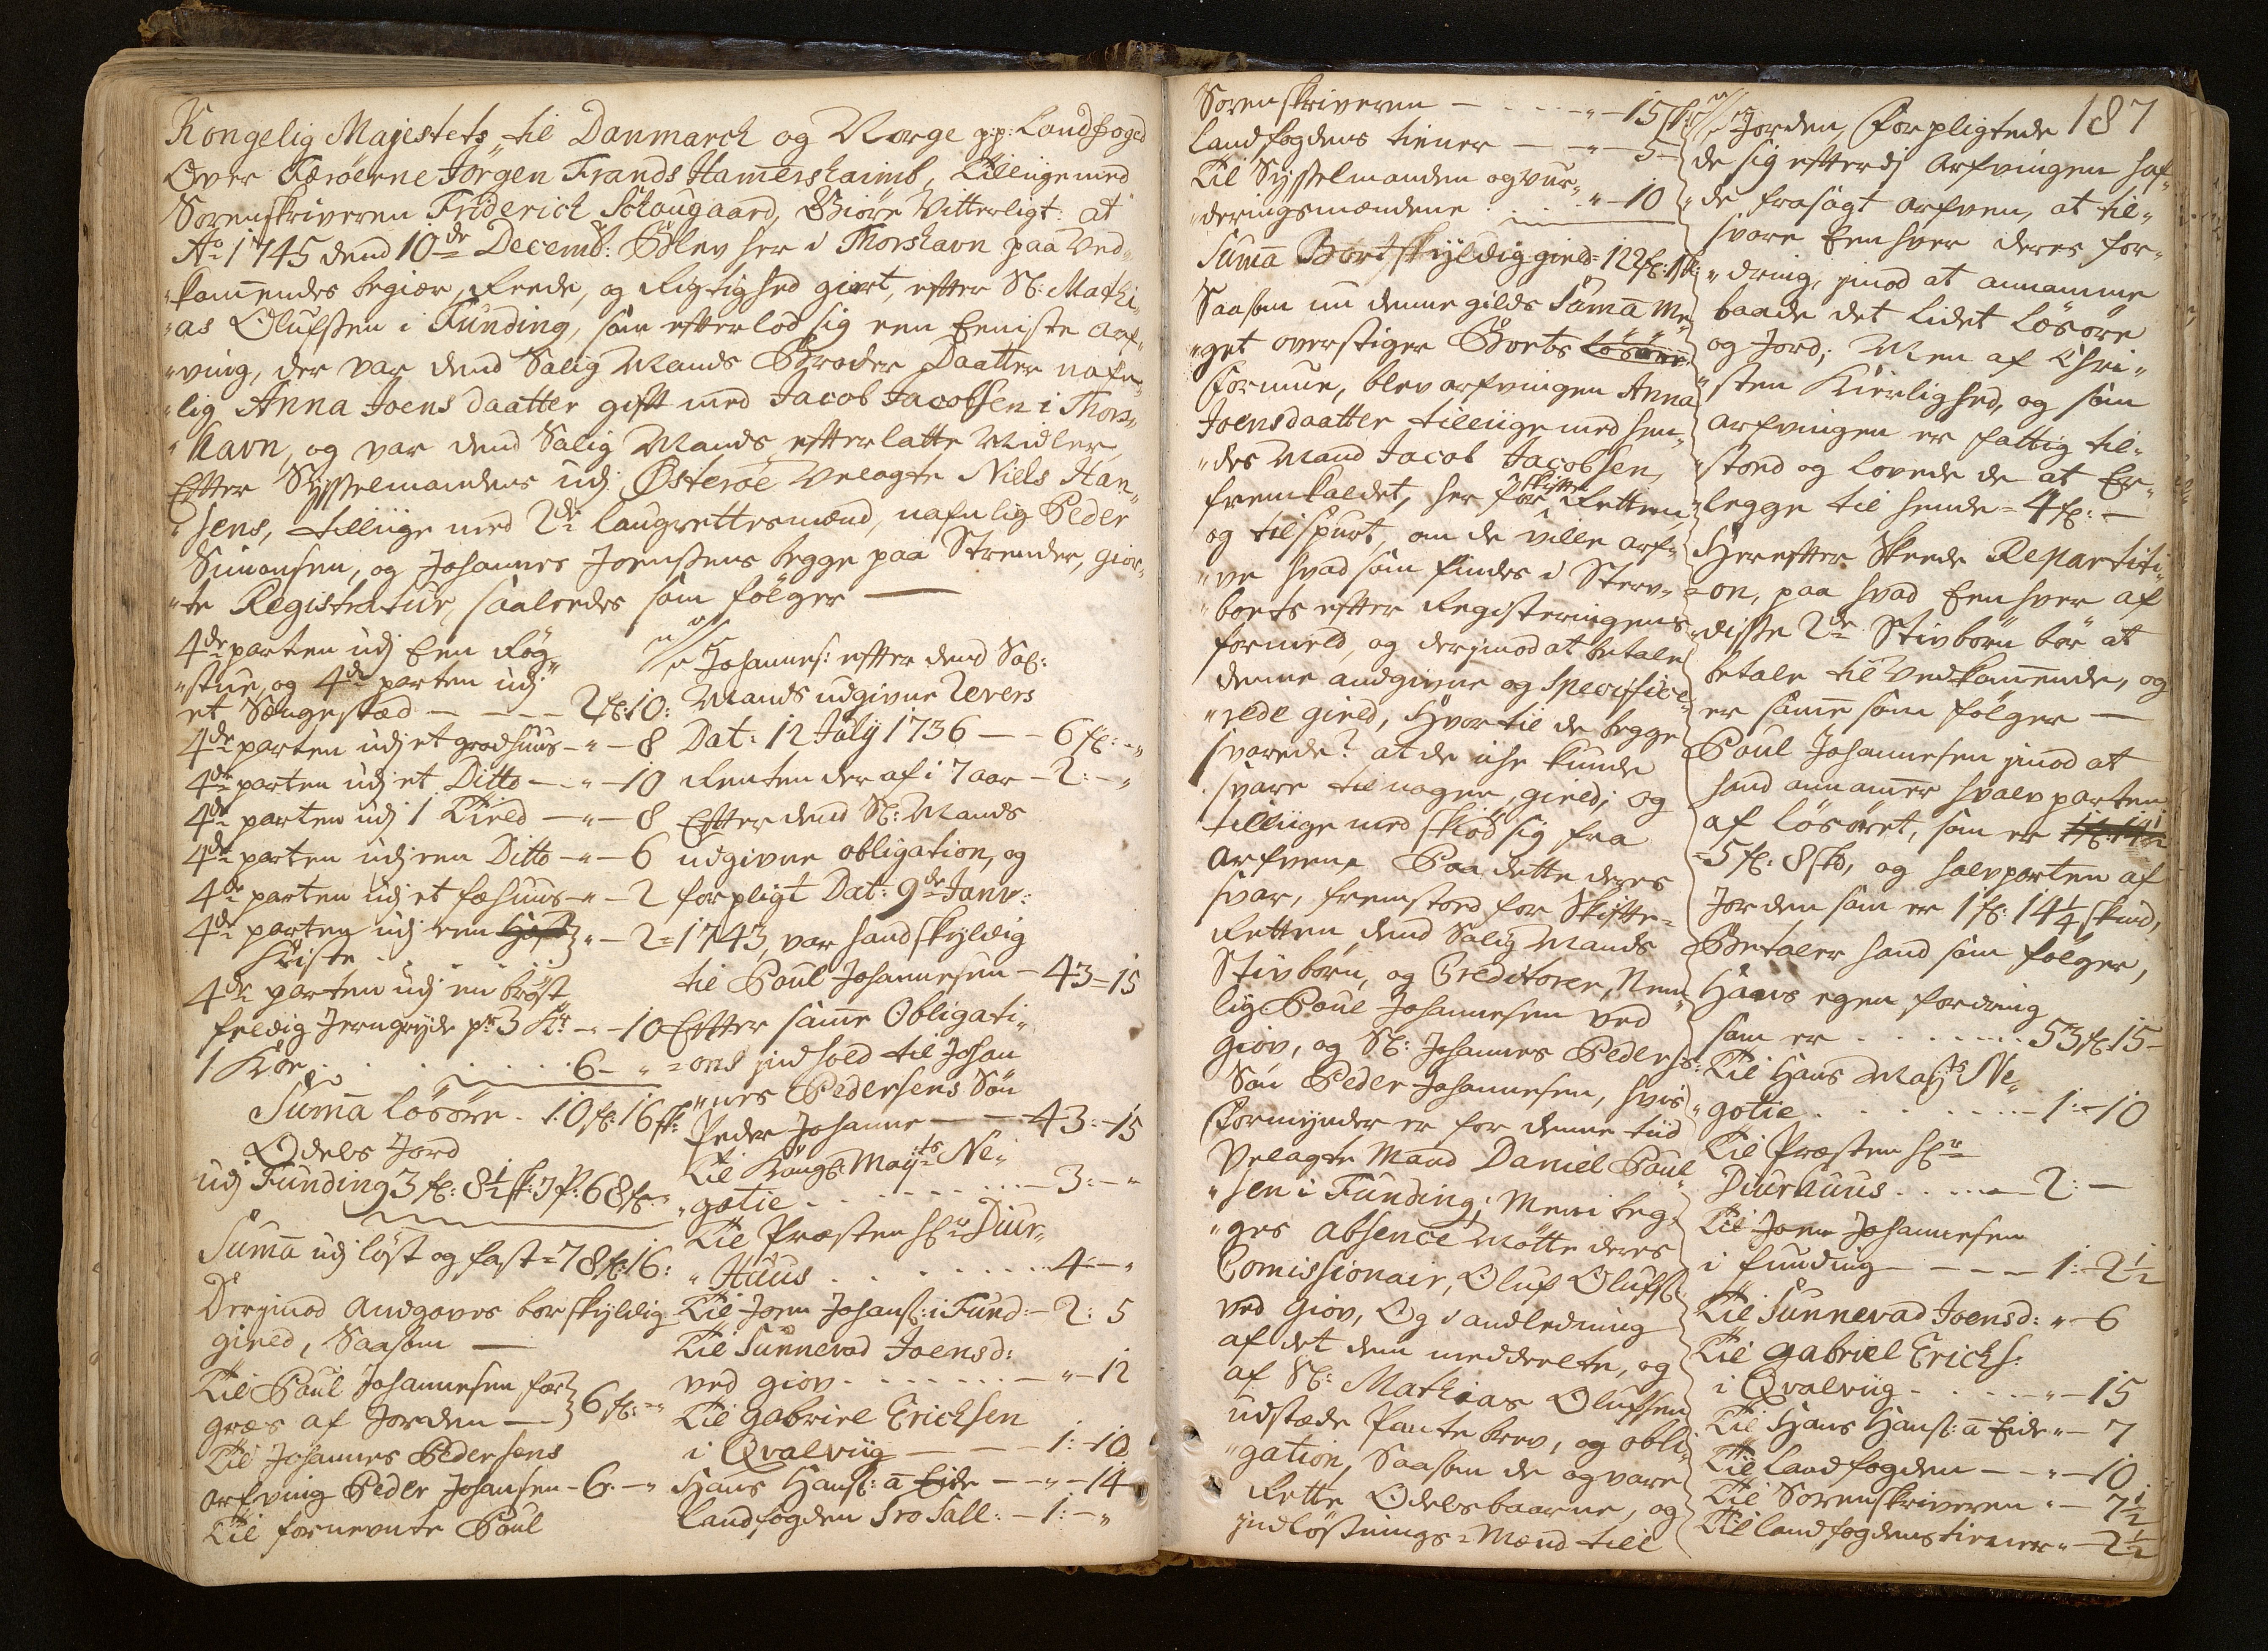 Kongelig Majestets til Danmarck og Norge p:p: Landfoged
Over Færöerne Jörgen Frands Hamershaimb, Tilliige med
Sorenskriveren Friderich Schougaard, Giöre Vitterligt: at
Ao 1745 dend 10de Decemb: Blev her i Thorshavn paa Ved„
„kommendes begiær, Reede, og Rigtighed giort, efter Sl: Mathi„
„as Olufsen i Funding, som efterlod sig een Eeniste Arf„
„ving, der var dend Salig Mands Broder Daatter nafn„
„lig Anna Joens daatter gift med Jacob Jacobsen i Thors„
„havn, og var dend Salig Mands efterlatte Midler,
Efter Sysselmandens udj Österöe Velagte Niels Han„
„sens, tilliige med 2de laugrettesmænd, nafnlig Peder
Simonsen, og Johannes Joensens begge paa Strender, gior„
„te Registratur, saaledes som fölger —
4de parten udj Een Rög
„stue, og 4de parten udj
et Sængestæd — — — 2 fl: 10:
4de parten udj et grodhuus — „ — 8
4de parten udj et Ditto — „ — 10
4de parten udj 1 Kield — „ — 8
4de parten udj een Ditto — „ — 6
4de parten udj et fæhuus — „ — 2
4de parten udj een
Kiste . . . „ — 2
4de parten udj en bröst
feldig Jerngryde pr 3 Kr — „ — 10
1 Koe . . . . . . 6 — „
Suma lösöre . 10 fl: 16 sk:
Odels Jord
udj Funding 3 fl: 8½ sk: J p: 68 fl: „
Suma udj löst og fast = 78 fl: 16:
Derjmod Andgaves bortskyldig
gield, Saasom —
Til Poul Johannesen for
græs af Jorden — 6 fl: „
Til Johannes Pedersens
arfving Peder Johansen — 6: — „
Til fornevnte Poul
Johannes: efter dend Sal:
Mands udgivne Revers
Dat: 12 July 1736 — — 6 fl: — „
Renten der af i 7 aar — 2: — „
Efter dend Sl: Mands
udgivne obligation, og
forpligt Dat: 9de Janv:
1743, var hand skyldig
til Poul Johannesen — 43 = 15
Efter same Obligati„
„ons jndhold til Johan
„nes Pedersens Sön
Peder Johanne — — 43: — 15
Til Kongl: Mayts Ne„
„gotie . . . . . . — 3: — „
Til Præsten Hr Diur„
„Huus . . . . . . 4 — „
Til Joen Johans: i Fund: — 2: 5
Til Sunnevad Joensd:
ved giov . . . . . — „ — 12
Til Gabriel Ericksen
i Qvalviig — — — 1: — 10
Hans Hans: a Eide — — „ — 14
Landfogden Sro Sall: — 1: — „
Sorenskriveren — . . . — „ — 15 sk:
Landfogdens tiener — — „ — 5 —
Til Sysselmanden og vur„
„deringsmændene . . . „ — 10
Suma Bortskyldig gield = 122 fl: 1 sk:
Saasom nu denne gilds Suma Me„
„get overstiger Boets Lösöre
formue, blev arfvingen Anna
Joensdaatter tilliige med hen„
„des Mand Jacob Jacobsen,
fremkaldet, her for Skifte Retten,
og tilspurt, om de ville arf„
„ve hvad som findes i Sterv„
„boets efter Registeringens
formeld, og derjmod at betale
denne andgivne og Specifice„
„rede gield, Hvortil de begge
svarede? at de iche kunde
svare til nogen gield; og
tilliige med skiöd sig fra
arfven, Paa dette deres
svar, fremstoed for Skifte„
Retten dend Salig Mands
Stivbörn, og Creditorer, Nem„
lig Poul Johannesen ved
giov, og Sl: Johannes Peders:
Sön Peder Johannesen, hvis
formynder er for denne tiid
Velagte Mand Daniel Poul„
„sen i Funding; Men i beg„
„ges absence Mötte deres
Comissionair, Oluf Olufs:
ved Giov, Og i andledning
af det dem meddeelte, og
af Sl: Mathias Olufsen
udstæde Pantebrev, og obli„
„gation, Saasom de og vare
Rette Odelsbaarne, og
jndlösnings = Mænd till
187
Jorden, forpligtede
de sig efterdj Arfvingen haf„
„de frasagt arfven, at til„
svare Eenhver deres for„
„dring, jmod at annamme
baade det lidet lösöre
og Jord; Men af Chri„
„sten Kierlighed, og som
arfvingen er fattig til„
„stoed og lovede de at Er„
„legge til hende = 4 fl: —
Herefter Skeede Repartiti„
„on, paa hvad Eenhver af
disse 2de Stivbörn bör at
betale til vedkommende, og
er samme som fölger —
Poul Johannesen jmod at
hand annamer halv parten
af lösöret, som er
= 5 fl: 8 skd, og halvparten af
Jorden som er 1 fl: 14¼ skind,
Betaler hand som fölger,
Hans egen fordring
som er . . . . . . . 53 fl: 15 —
Til Hans Mayts Ne„
„gotie . . . . . . — 1: — 10
Til Præsten Hr
Diurhuus . . . — 2: —
Til Joen Johannesen
i funding — — — — 1: — 2½
Til Sunnevad Joensd: „ — 6
Til Gabriel Ericks:
i Qvalviig . . . . — „ — 15
Til Hans Hans: a Eide „ — 7
Til Landfogden — — „ — 10
Til Sorenskriveren „ — 7½
Til landfogdens tiener „ — 2½